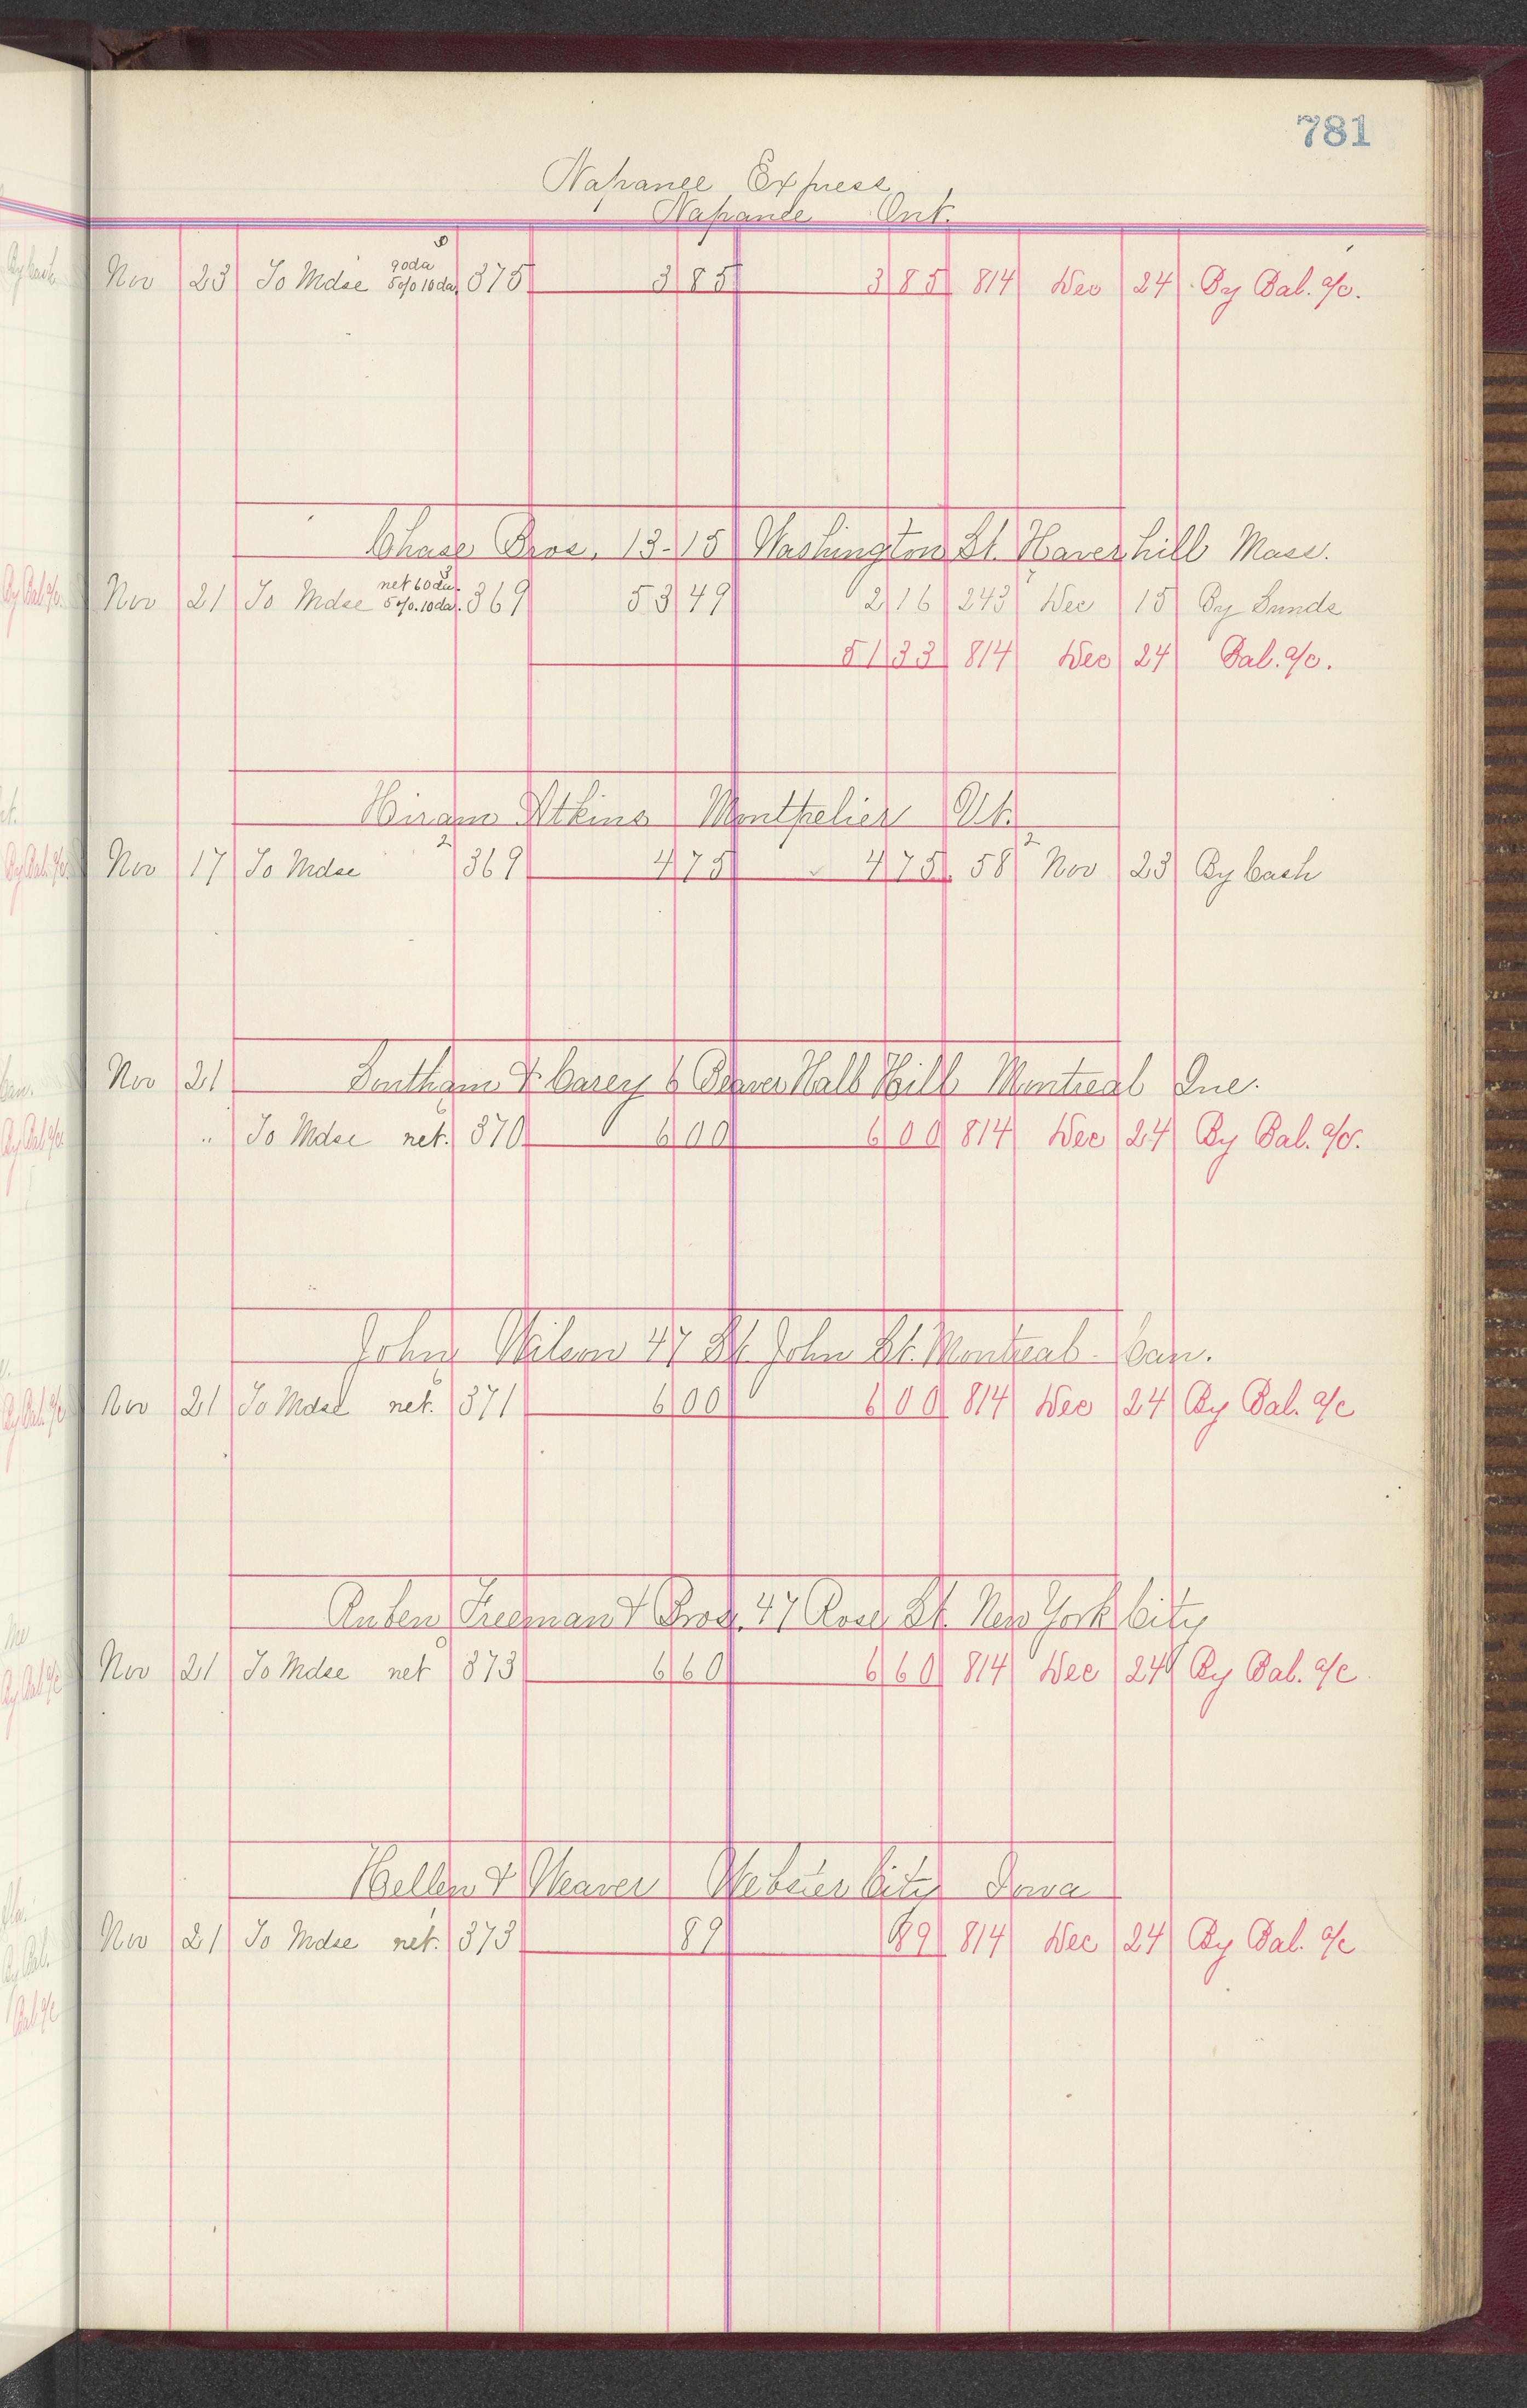 781
Napanee Express
Napanee Ont.
Nov 23 To Mdse 90da 5 o/o 10da. 375 3 85 3 85 814 Dec 24 By Bal. a/c.
Chase Bros. 13-15 Washington St. Haverhill Mass.
Nov 21 To Mdse net 60da. 5 o/o. 10da. 369 53 49 2 16 243 Dec 15 By Sunds
51 33 814 Dec 24 Bal. a/c.
Hiram Atkins Montpelier Vt.
Nov 17 To Mdse 2 369 4 75 4 75 58 2 Nov 23 By Cash
Nov 21 Southam & Carey 6 Beaver Hall Hill Montreal Que.
" To Mdse net. 370 6 00 6 00 814 Dec 24 By Bal. a/c.
John Wilson 47 St. John St. Montreal Can.
Nov 21 To Mdse net. 371 6 00 6 00 814 Dec 24 By Bal. a/c
Ruben Freeman & Bros. 47 Rose St. New York City
Nov 21 To Mdse net 373 6 60 6 60 814 Dec 24 By Bal. a/c
Hellen & Weaver Webster City Iowa
Nov 21 To Mdse net. 373 89 89 814 Dec 24 By Bal. a/c